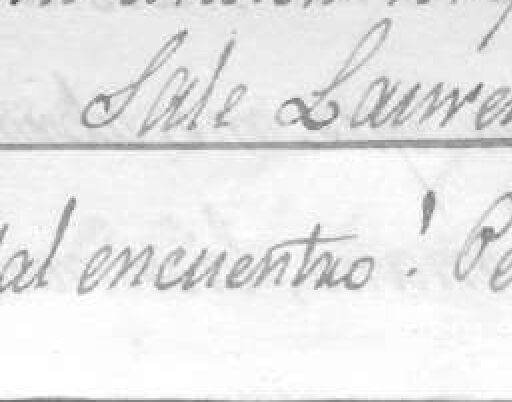 Sale Lauren
al encuentro! Pe